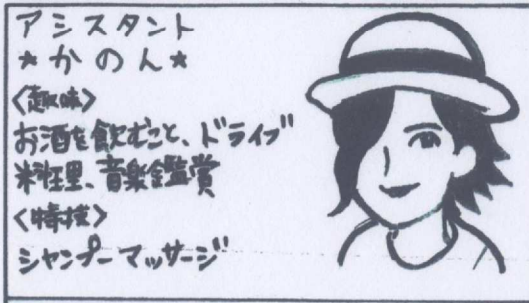 アシスタント
★かのん★
〈趣味〉
お酒を飲むこと、ドライブ
料理、音楽鑑賞
〈特技〉
シャンプーマッサージ